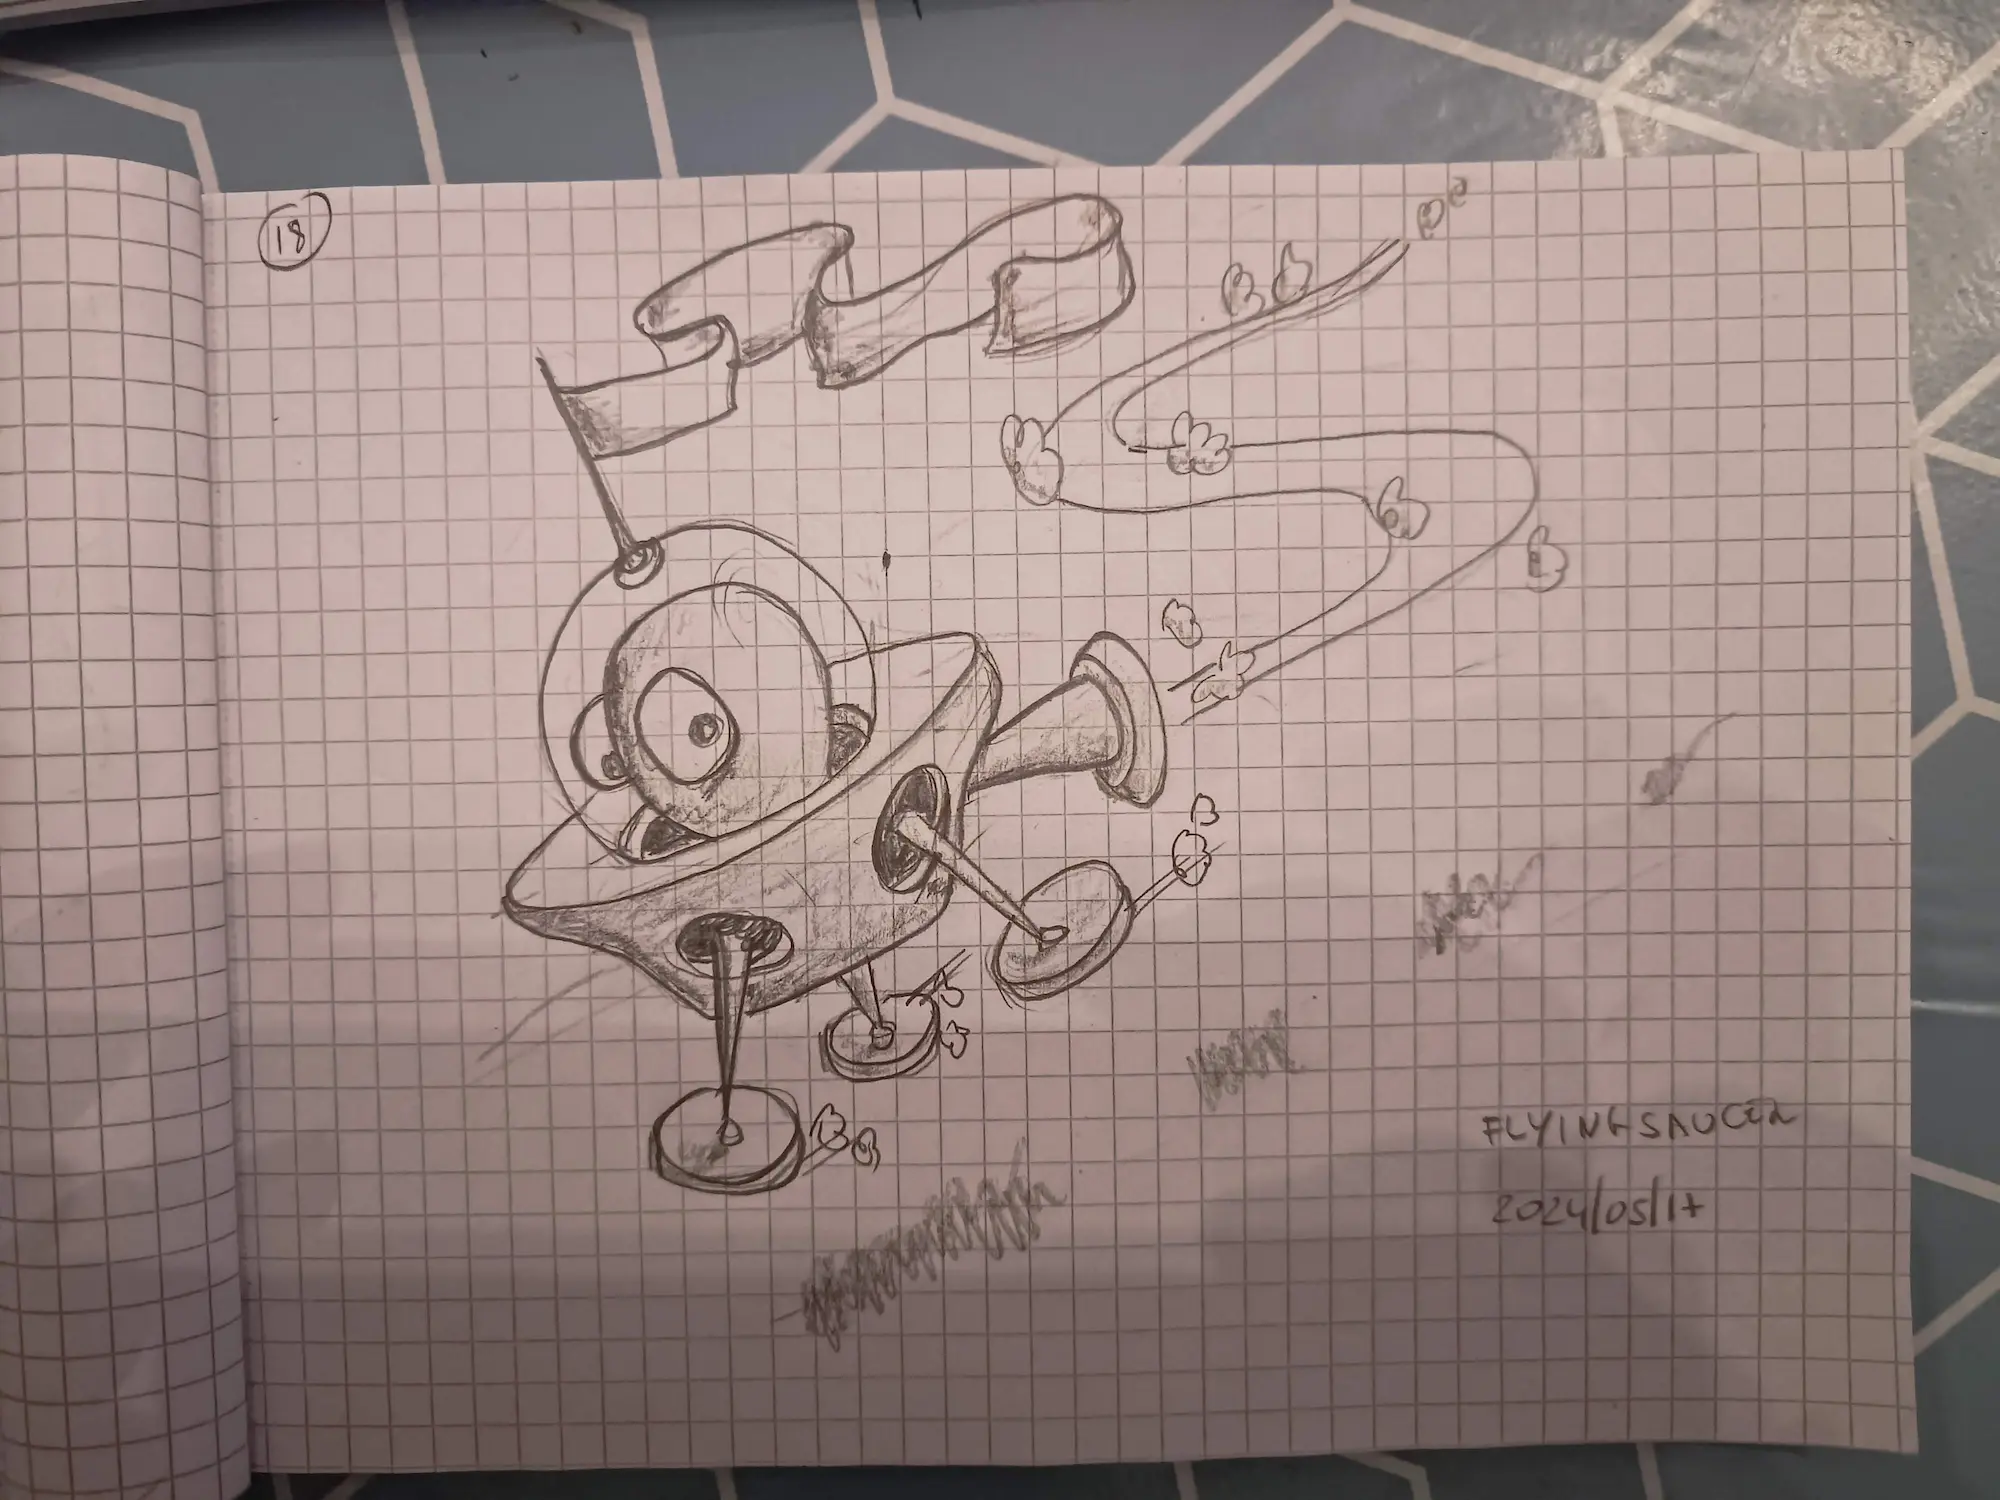 18
FLYINGSAUCER
2024/05/17